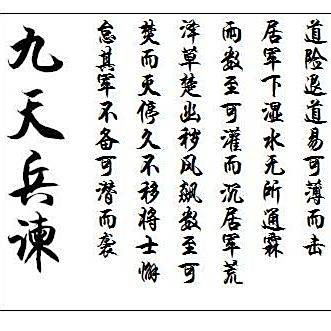 道险退道易可薄而击
居军下湿水无所通霖
雨数至可灌而沉居军荒
泽草楚幽秽风飙数至可
焚而灭停久不移将士懈
怠其军不备可潜而袭
九天兵谏